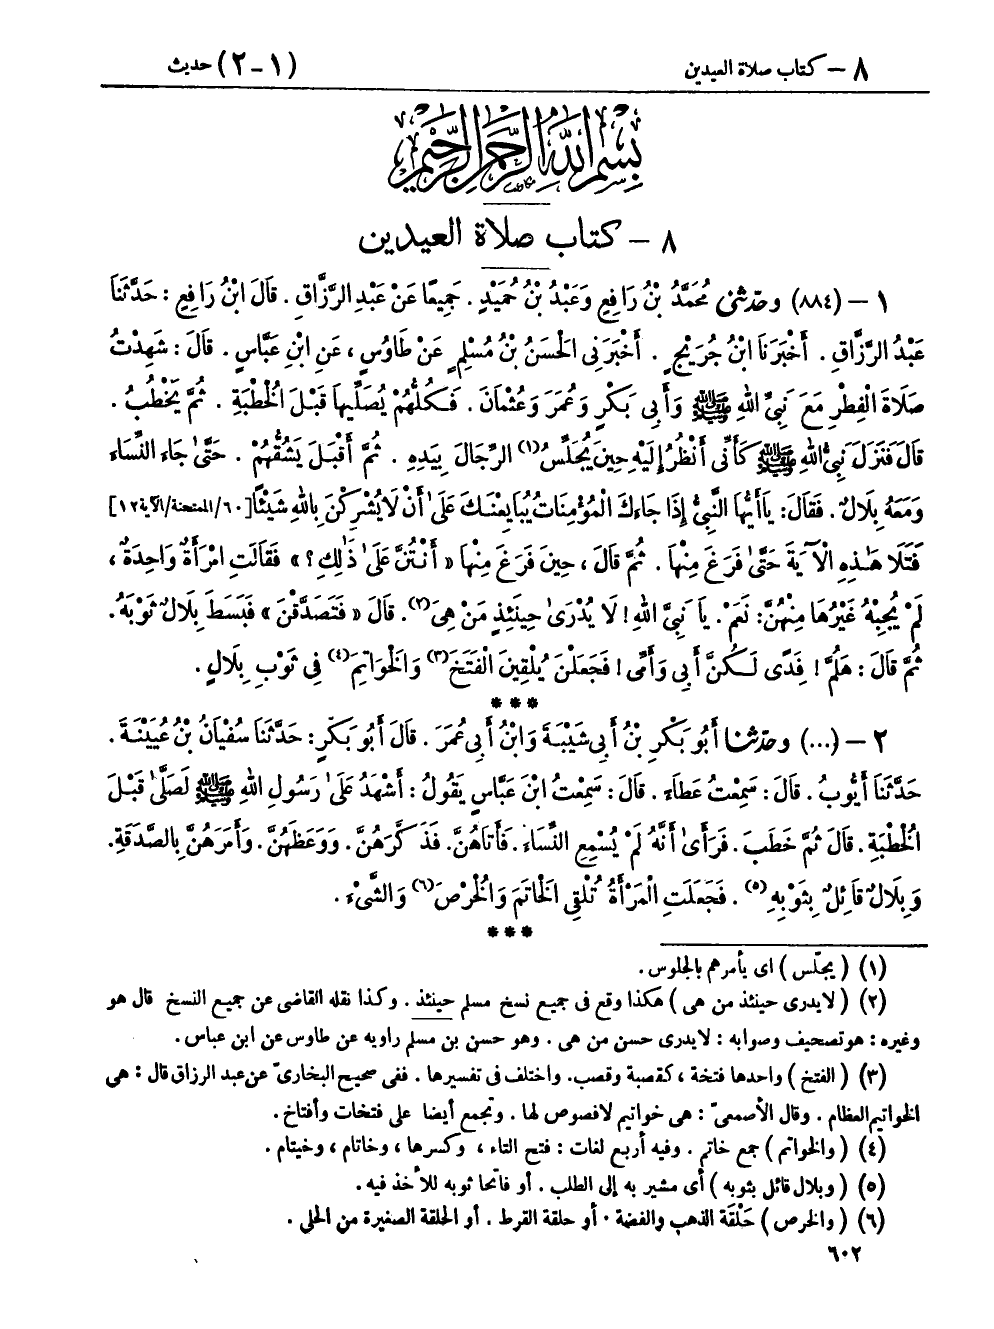 ٨ - كتاب صلاة العيدين
(١ - ٢) حديث
بِسْمِ اللهِ الرَّحْمٰنِ الرَّحِيمِ
٨ - كتاب صلاة العيدين
١ - (٨٨٤) وحدّثني مُحَمَّدُ بْنُ رَافِعٍ وَعَبْدُ بْنُ حُمَيْدٍ . جَمِيعًا عَنْ عَبْدِ الرَّزَّاقِ . قَالَ ابْنُ رَافِعٍ : حَدَّثَنَا
عَبْدُ الرَّزَّاقِ . أَخْبَرَنَا ابْنُ جُرَيْجٍ . أَخْبَرَنِي الْحَسَنُ بْنُ مُسْلِمٍ عَنْ طَاوُسٍ ، عَنِ ابْنِ عَبَّاسٍ . قَالَ : شَهِدْتُ
صَلَاةَ الْفِطْرِ مَعَ نَبِيِّ اللهِ ﷺ وَأَبِي بَكْرٍ وَعُمَرَ وَعُثْمَانَ . فَكُلُّهُمْ يُصَلِّيهَا قَبْلَ الْخُطْبَةِ . ثُمَّ يَخْطُبُ .
قَالَ فَنَزَلَ نَبِيُّ اللهِ ﷺ كَأَنِّي أَنْظُرُ إِلَيْهِ حِينَ يُجَلِّسُ(١) الرِّجَالَ بِيَدِهِ . ثُمَّ أَقْبَلَ يَشُقُّهُمْ . حَتَّىٰ جَاءَ النِّسَاءَ
وَمَعَهُ بِلَالٌ . فَقَالَ: يَا أَيُّهَا النَّبِيُّ إِذَا جَاءَكَ الْمُؤْمِنَاتُ يُبَايِعْنَكَ عَلَىٰ أَنْ لَا يُشْرِكْنَ بِاللهِ شَيْئًا [٦٠/الممتحنة/الآية١٢]
فَتَلَا هَٰذِهِ الْآيَةَ حَتَّىٰ فَرَغَ مِنْهَا . ثُمَّ قَالَ ، حِينَ فَرَغَ مِنْهَا « أَنْتُنَّ عَلَىٰ ذَٰلِكِ؟ » فَقَالَتِ امْرَأَةٌ وَاحِدَةٌ ،
لَمْ يُجِبْهُ غَيْرُهَا مِنْهُنَّ: نَعَمْ . يَا نَبِيَّ اللهِ! لَا يُدْرَىٰ حِينَئِذٍ مَنْ هِيَ(٢). قَالَ « فَتَصَدَّقْنَ » فَبَسَطَ بِلَالٌ ثَوْبَهُ.
ثُمَّ قَالَ : هَلُمَّ! فِدًى لَكُنَّ أَبِي وَأُمِّي! فَجَعَلْنَ يُلْقِينَ الْفَتَخَ(٣) وَالْخَوَاتِيمَ(٤) فِي ثَوْبِ بِلَالٍ .
* * *
٢ - (...) وحدّثنا أَبُو بَكْرِ بْنُ أَبِي شَيْبَةَ وَابْنُ أَبِي عُمَرَ . قَالَ أَبُو بَكْرٍ: حَدَّثَنَا سُفْيَانُ بْنُ عُيَيْنَةَ .
حَدَّثَنَا أَيُّوبُ . قَالَ: سَمِعْتُ عَطَاءً . قَالَ: سَمِعْتُ ابْنَ عَبَّاسٍ يَقُولُ : أَشْهَدُ عَلَىٰ رَسُولِ اللهِ ﷺ لَصَلَّىٰ قَبْلَ
الْخُطْبَةِ. قَالَ ثُمَّ خَطَبَ . فَرَأَىٰ أَنَّهُ لَمْ يُسْمِعِ النِّسَاءَ . فَأَتَاهُنَّ. فَذَكَّرَهُنَّ. وَوَعَظَهُنَّ. وَأَمَرَهُنَّ بِالصَّدَقَةِ.
وَبِلَالٌ قَائِلٌ بِثَوْبِهِ(٥) . فَجَعَلَتِ الْمَرْأَةُ تُلْقِي الْخَاتَمَ وَالْخُرْصَ(٦) وَالشَّيْءَ .
* * *
(١) ( يجلّس ) أى يأمرهم بالجلوس .
(٢) ( لا يدرى حينئذ من هى ) هكذا وقع فى جميع نسخ مسلم حينئذ . وكذا نقله القاضى عن جميع النسخ قال هو
وغيره : هو تصحيف وصوابه : لا يدرى حسن من هى . وهو حسن بن مسلم راويه عن طاوس عن ابن عباس .
(٣) ( الفتخ ) واحدها فتخة ، كقصبة وقصب. واختلف فى تفسيرها . ففى صحيح البخارىّ عن عبد الرزاق قال : هى
الخواتيم العظام . وقال الأصمعىّ : هى خواتيم لا فصوص لها . وتجمع أيضا على فتخات وأفتاخ .
(٤) ( والخواتم ) جمع خاتم . وفيه أربع لغات : فتح التاء ، وكسرها ، وخاتام ، وخيتام .
(٥) ( وبلال قائل بثوبه ) أى مشير به إلى الطلب . أو فاتحا ثوبه للأخذ فيه .
(٦) ( والخرص ) حَلْقَة الذهب والفضة . أو حلقة القرط . أو الحلقة الصغيرة من الحلى .
٦٠٢